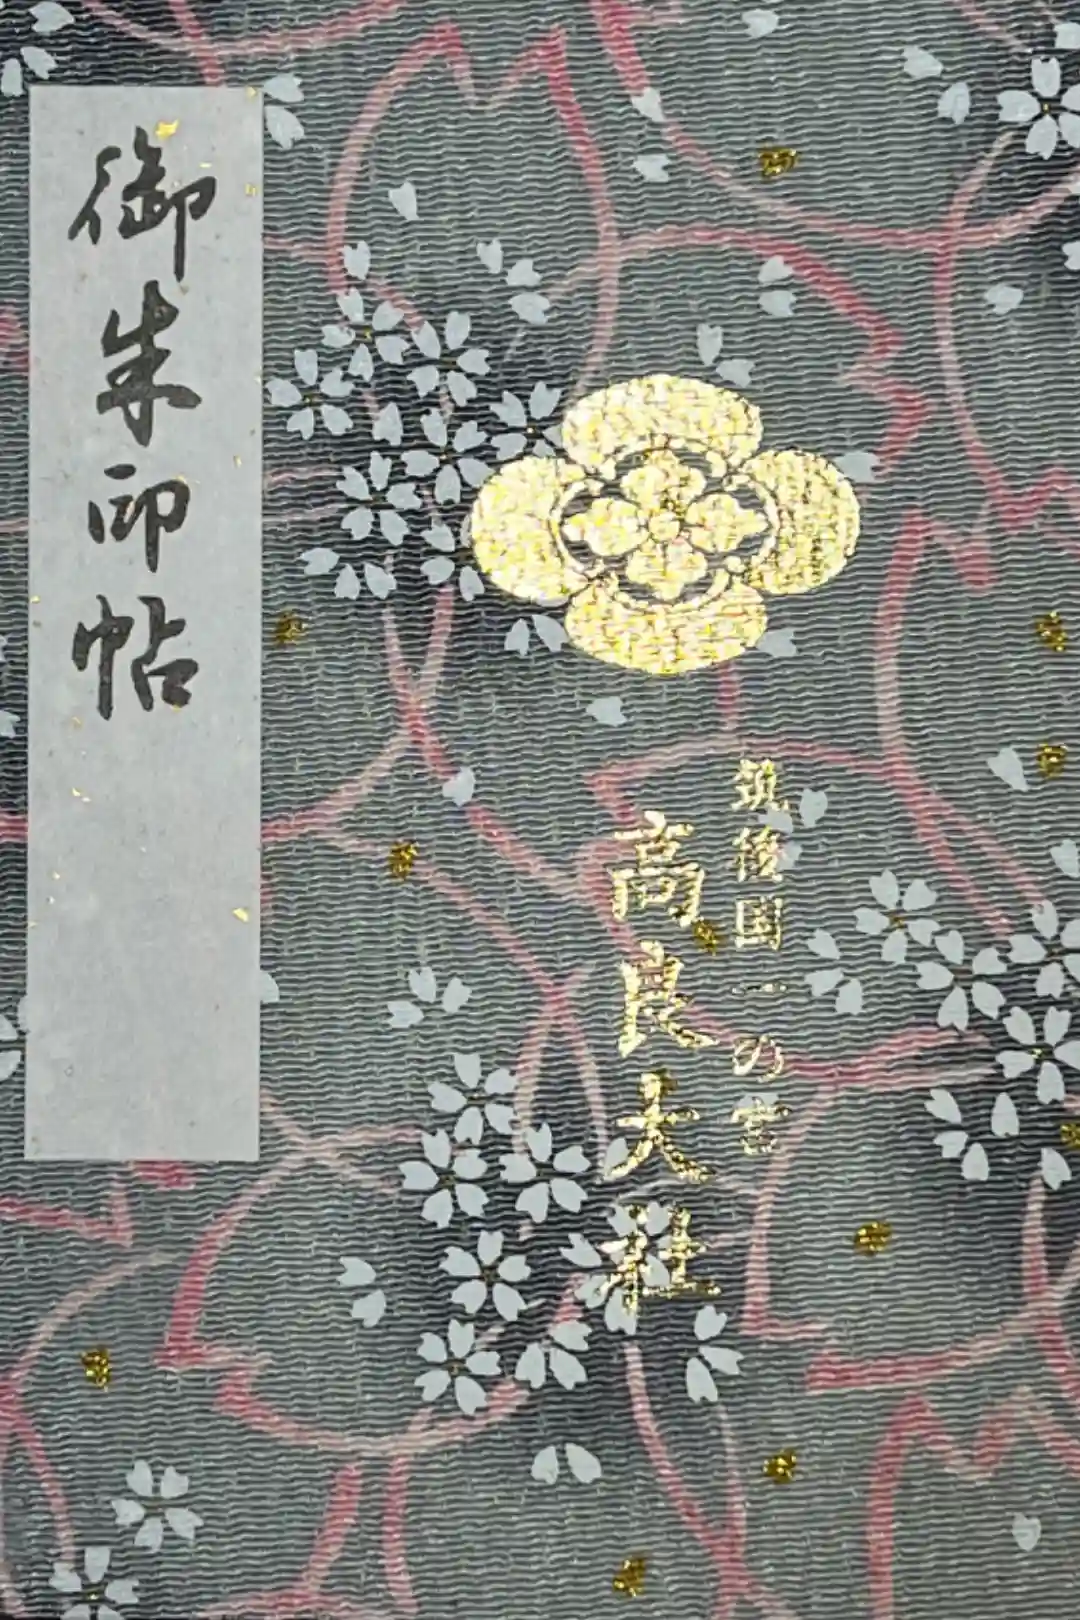 御朱印帖
筑後国一の宮
高良大社